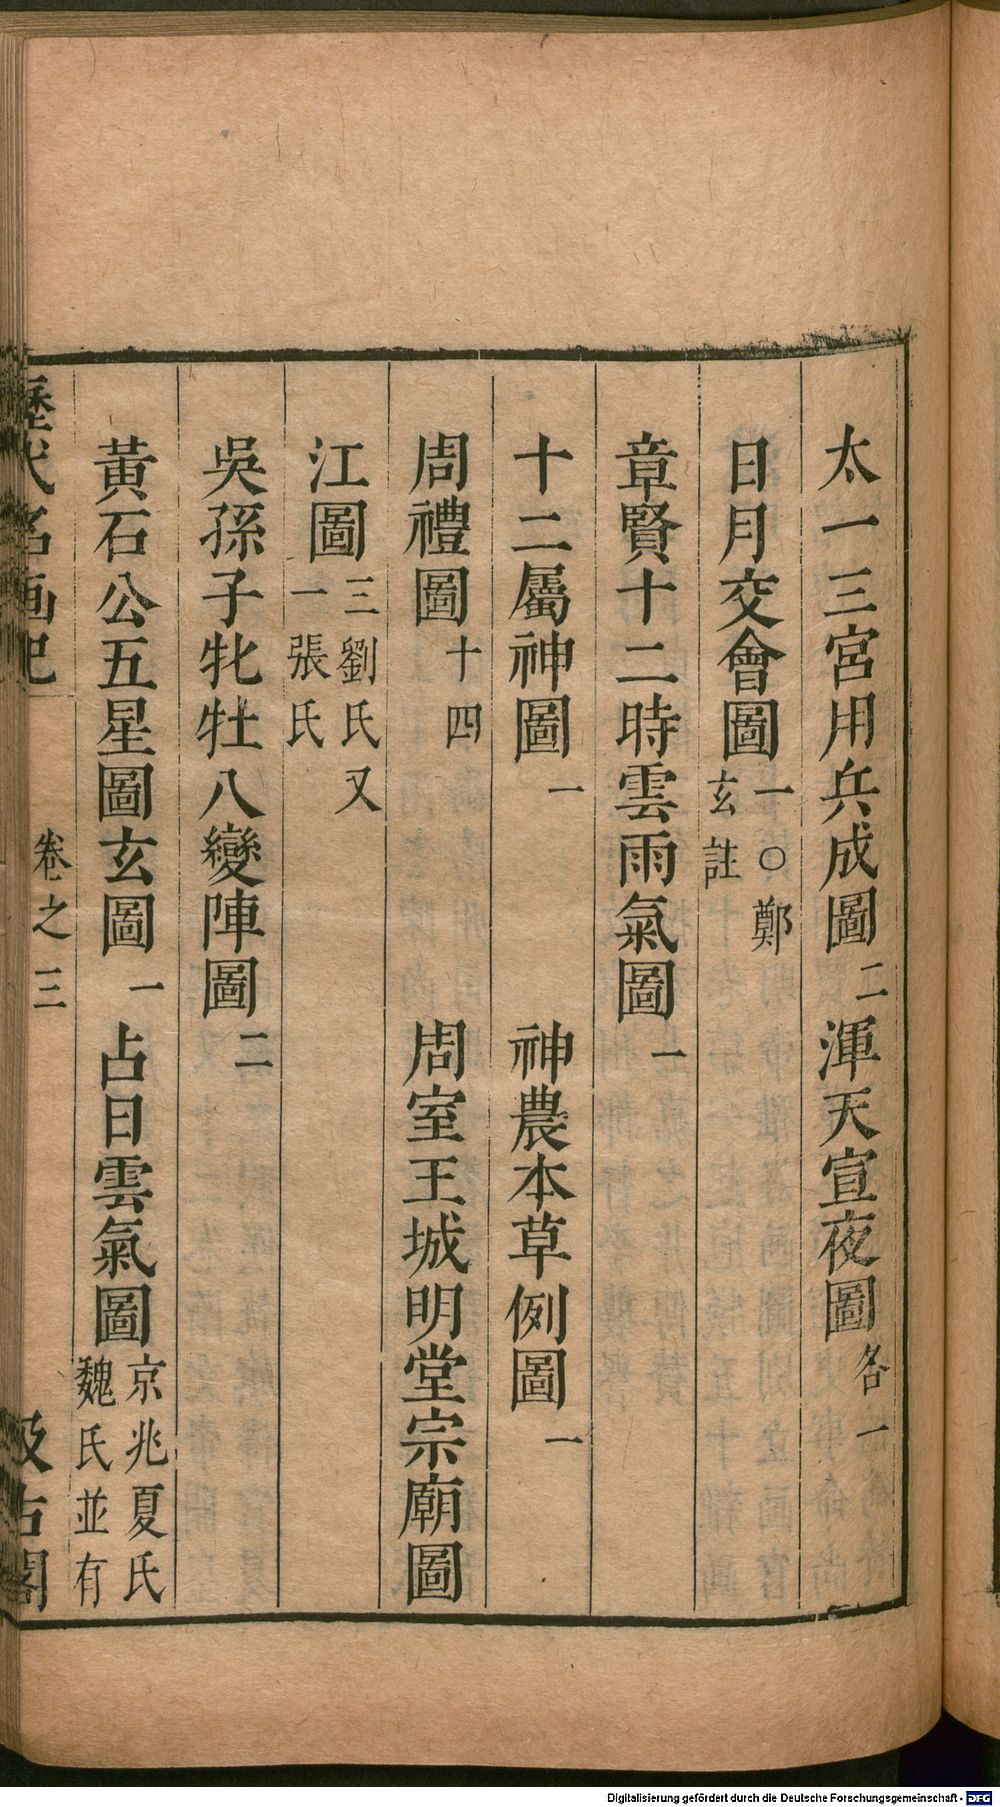 太一三宮用兵成圖二渾天宣夜圖各一
日月交會圖一○鄭玄註
章賢十二時雲雨氣圖一
十二屬神圖一 神農本草例圖一
周禮圖十四 周室王城明堂宗廟圖
江圖三劉氏又一張氏
吳孫子牝牡八變陣圖二
黃石公五星圖玄圖一 占日雲氣圖京兆夏氏魏氏並有
歷代名画記 卷之三 汲古閣
Digitalisierung gefördert durch die Deutsche Forschungsgemeinschaft - DFG